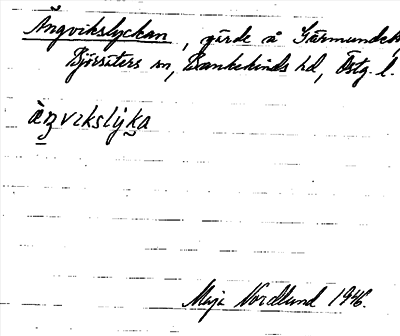 Ängvikslyckan, gärde å
Björsäters sn, Bankekinds hd, Östg. l.
àŋvikslyka
Maja Nordlund 1946.